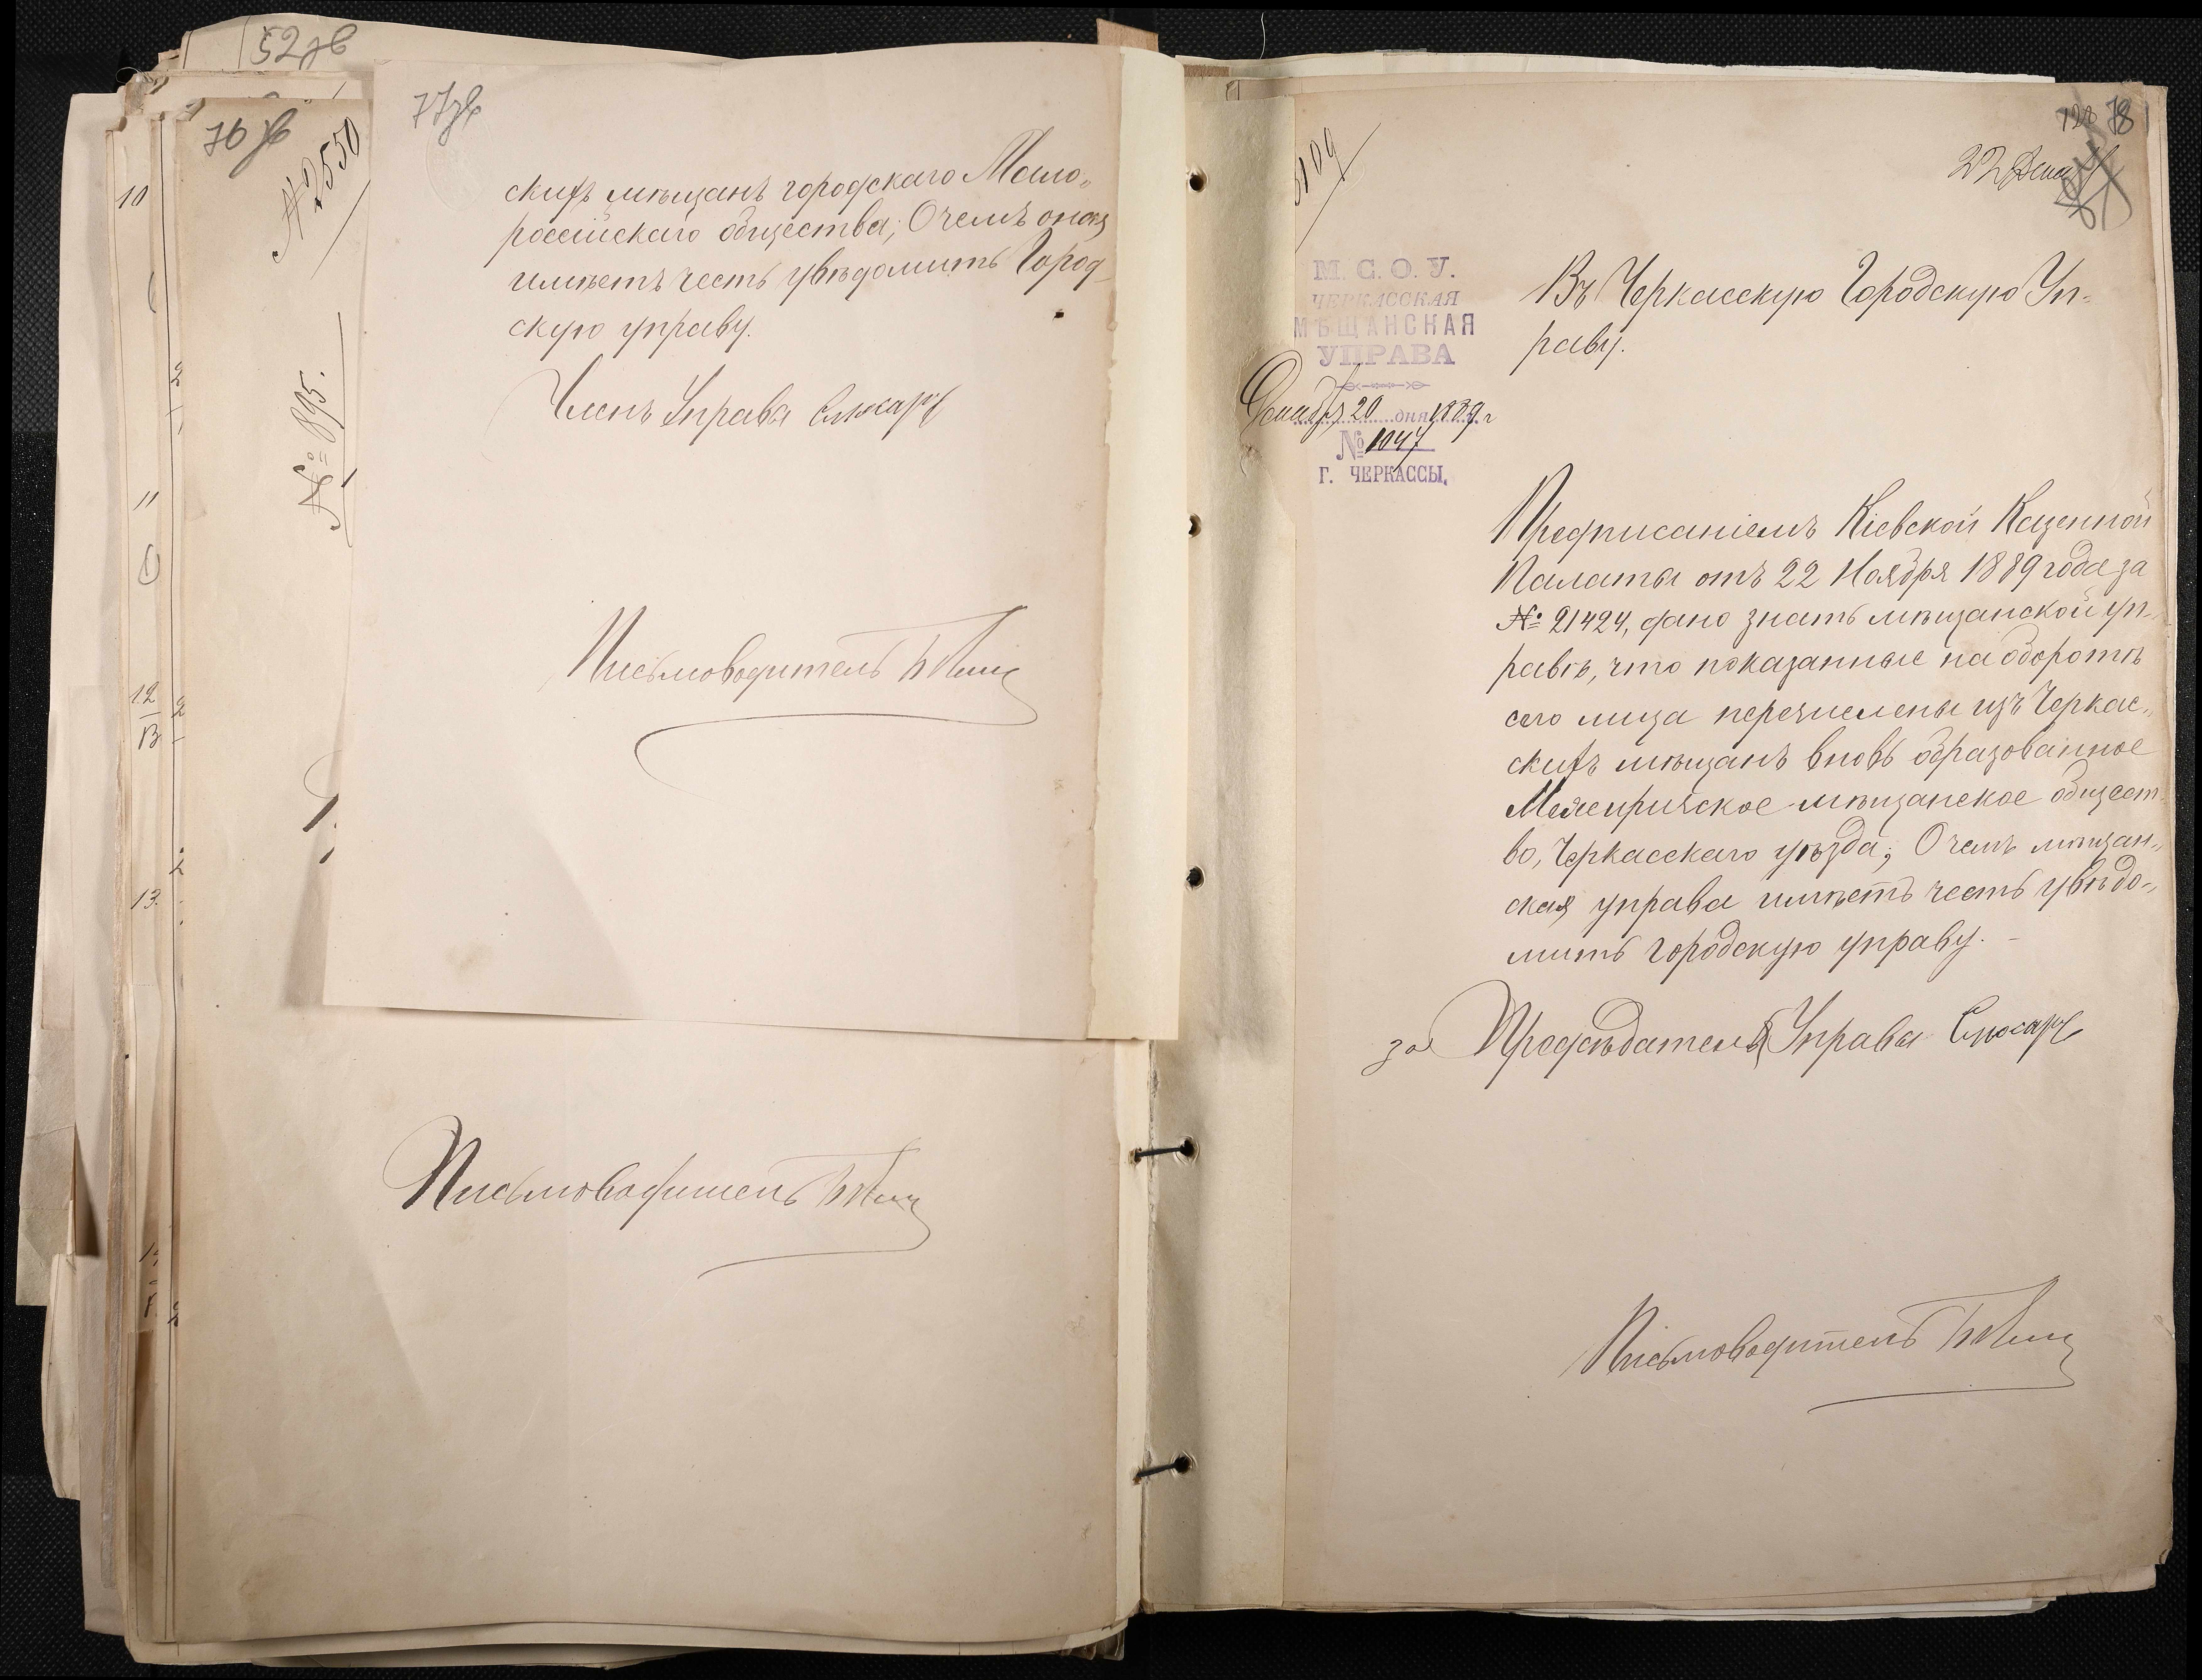 52 зв
76 зв
№ 2550
№ 895.
10
11
12
13
13.
77 зв
скихъ мѣщанъ городскаго Мало-
россійскаго общества; О чемъ оная
имѣетъ честь увѣдомить Город-
скую управу.
Членъ Управы Слюсарь
Письмоводитель
Письмоводитель
78
22 Декаб
109
М. С. О. У.
ЧЕРКАССКАЯ
МѢЩАНСКАЯ
УПРАВА
Декабря 20 дня 1889 г
№ 1047
Г. ЧЕРКАССЫ.
Въ Черкасскую Городскую Уп-
раву.
Предписаніемъ Кіевской Казенной
Палаты отъ 22 Ноября 1889 года за
№ 21424, дано знать мѣщанской уп-
равѣ, что показанные на оборотѣ
сего лица перечислены изъ Черкас-
скихъ мѣщанъ вновь образованное
Межиричское мѣщанское общест-
во, Черкасскаго уѣзда; О чемъ мѣщан-
ская управа имѣетъ честь увѣдо-
мить городскую управу. -
за Предсѣдателя Управы Слюсарь
Письмоводитель